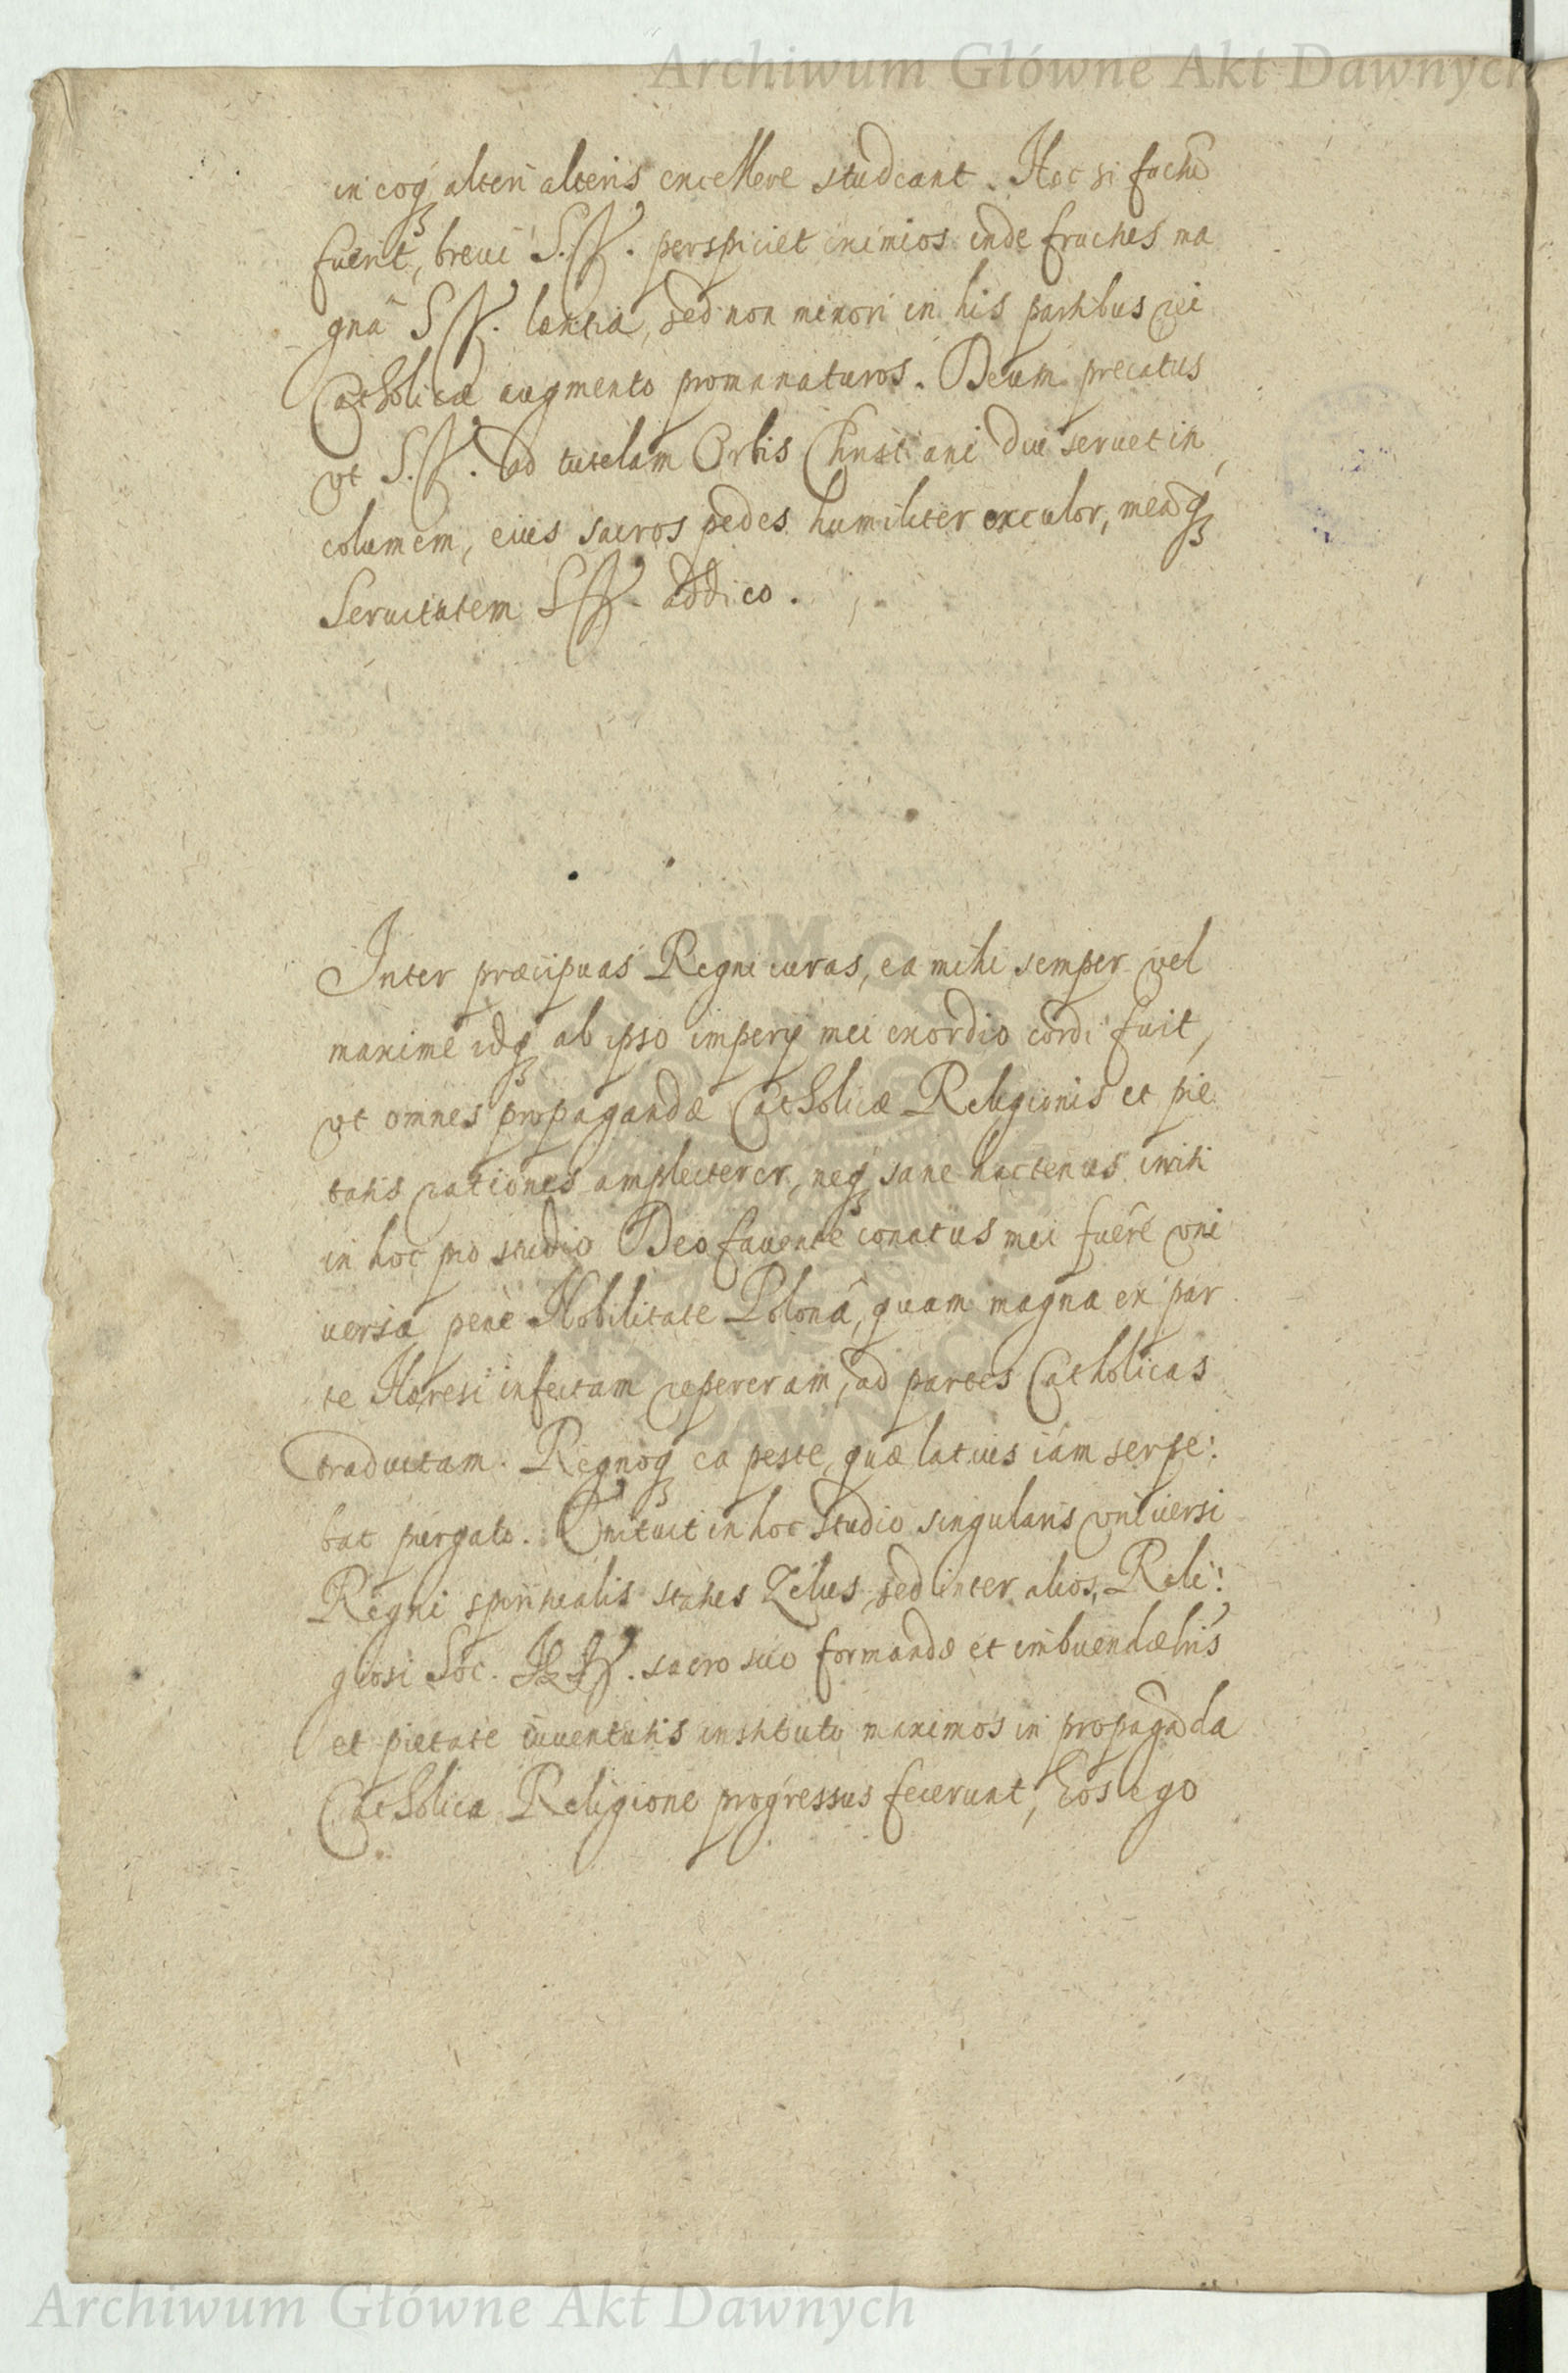 Archiwum Główne Akt Dawnych
in eoq₃ alteri alteris excellere studeant. Hoc si factũ
fuerit, breui S. V. perspiciet eximios inde fructus ma
gna S V. lætitia, sed non minori in his partibus rei
Catholicæ augmento promanaturos. Deum precatus
vt S. V. ad tutelam Orbis Christiani diu seruet in
columem, eius sacros pedes humiliter exculor, meãq₃
Seruitutem S V. addico.
Inter præcipuas Regni curas, ea mihi semper vel
maxime idq₃ ab ipso imperij mei exordio cordi fuit,
vt omnes propagandæ Catholicæ Religionis et pie
tatis rationes amplecterer, neq₃ sane hactenus irriti
in hoc pio studio Deo fauente conatus mei fuêre vni
uersa penè Nobilitate Polonâ, quam magna ex par
te Hæresi infectam repereram, ad partes Catholicas
traductam. Regnoq₃ ea peste, quæ latius iam serpe:
bat purgato. Enituit in hoc studio singularis vniuersi
Regni spiritualis status Zelus, sed inter alios, Reli:
giosi Soc. sacro suo formandæ et imbuendæ lris
et pietate iuuentutis instituto maximos in propagãda
Catholica Religione progressus fecerunt, Eos ego
Archiwum Główne Akt Dawnych